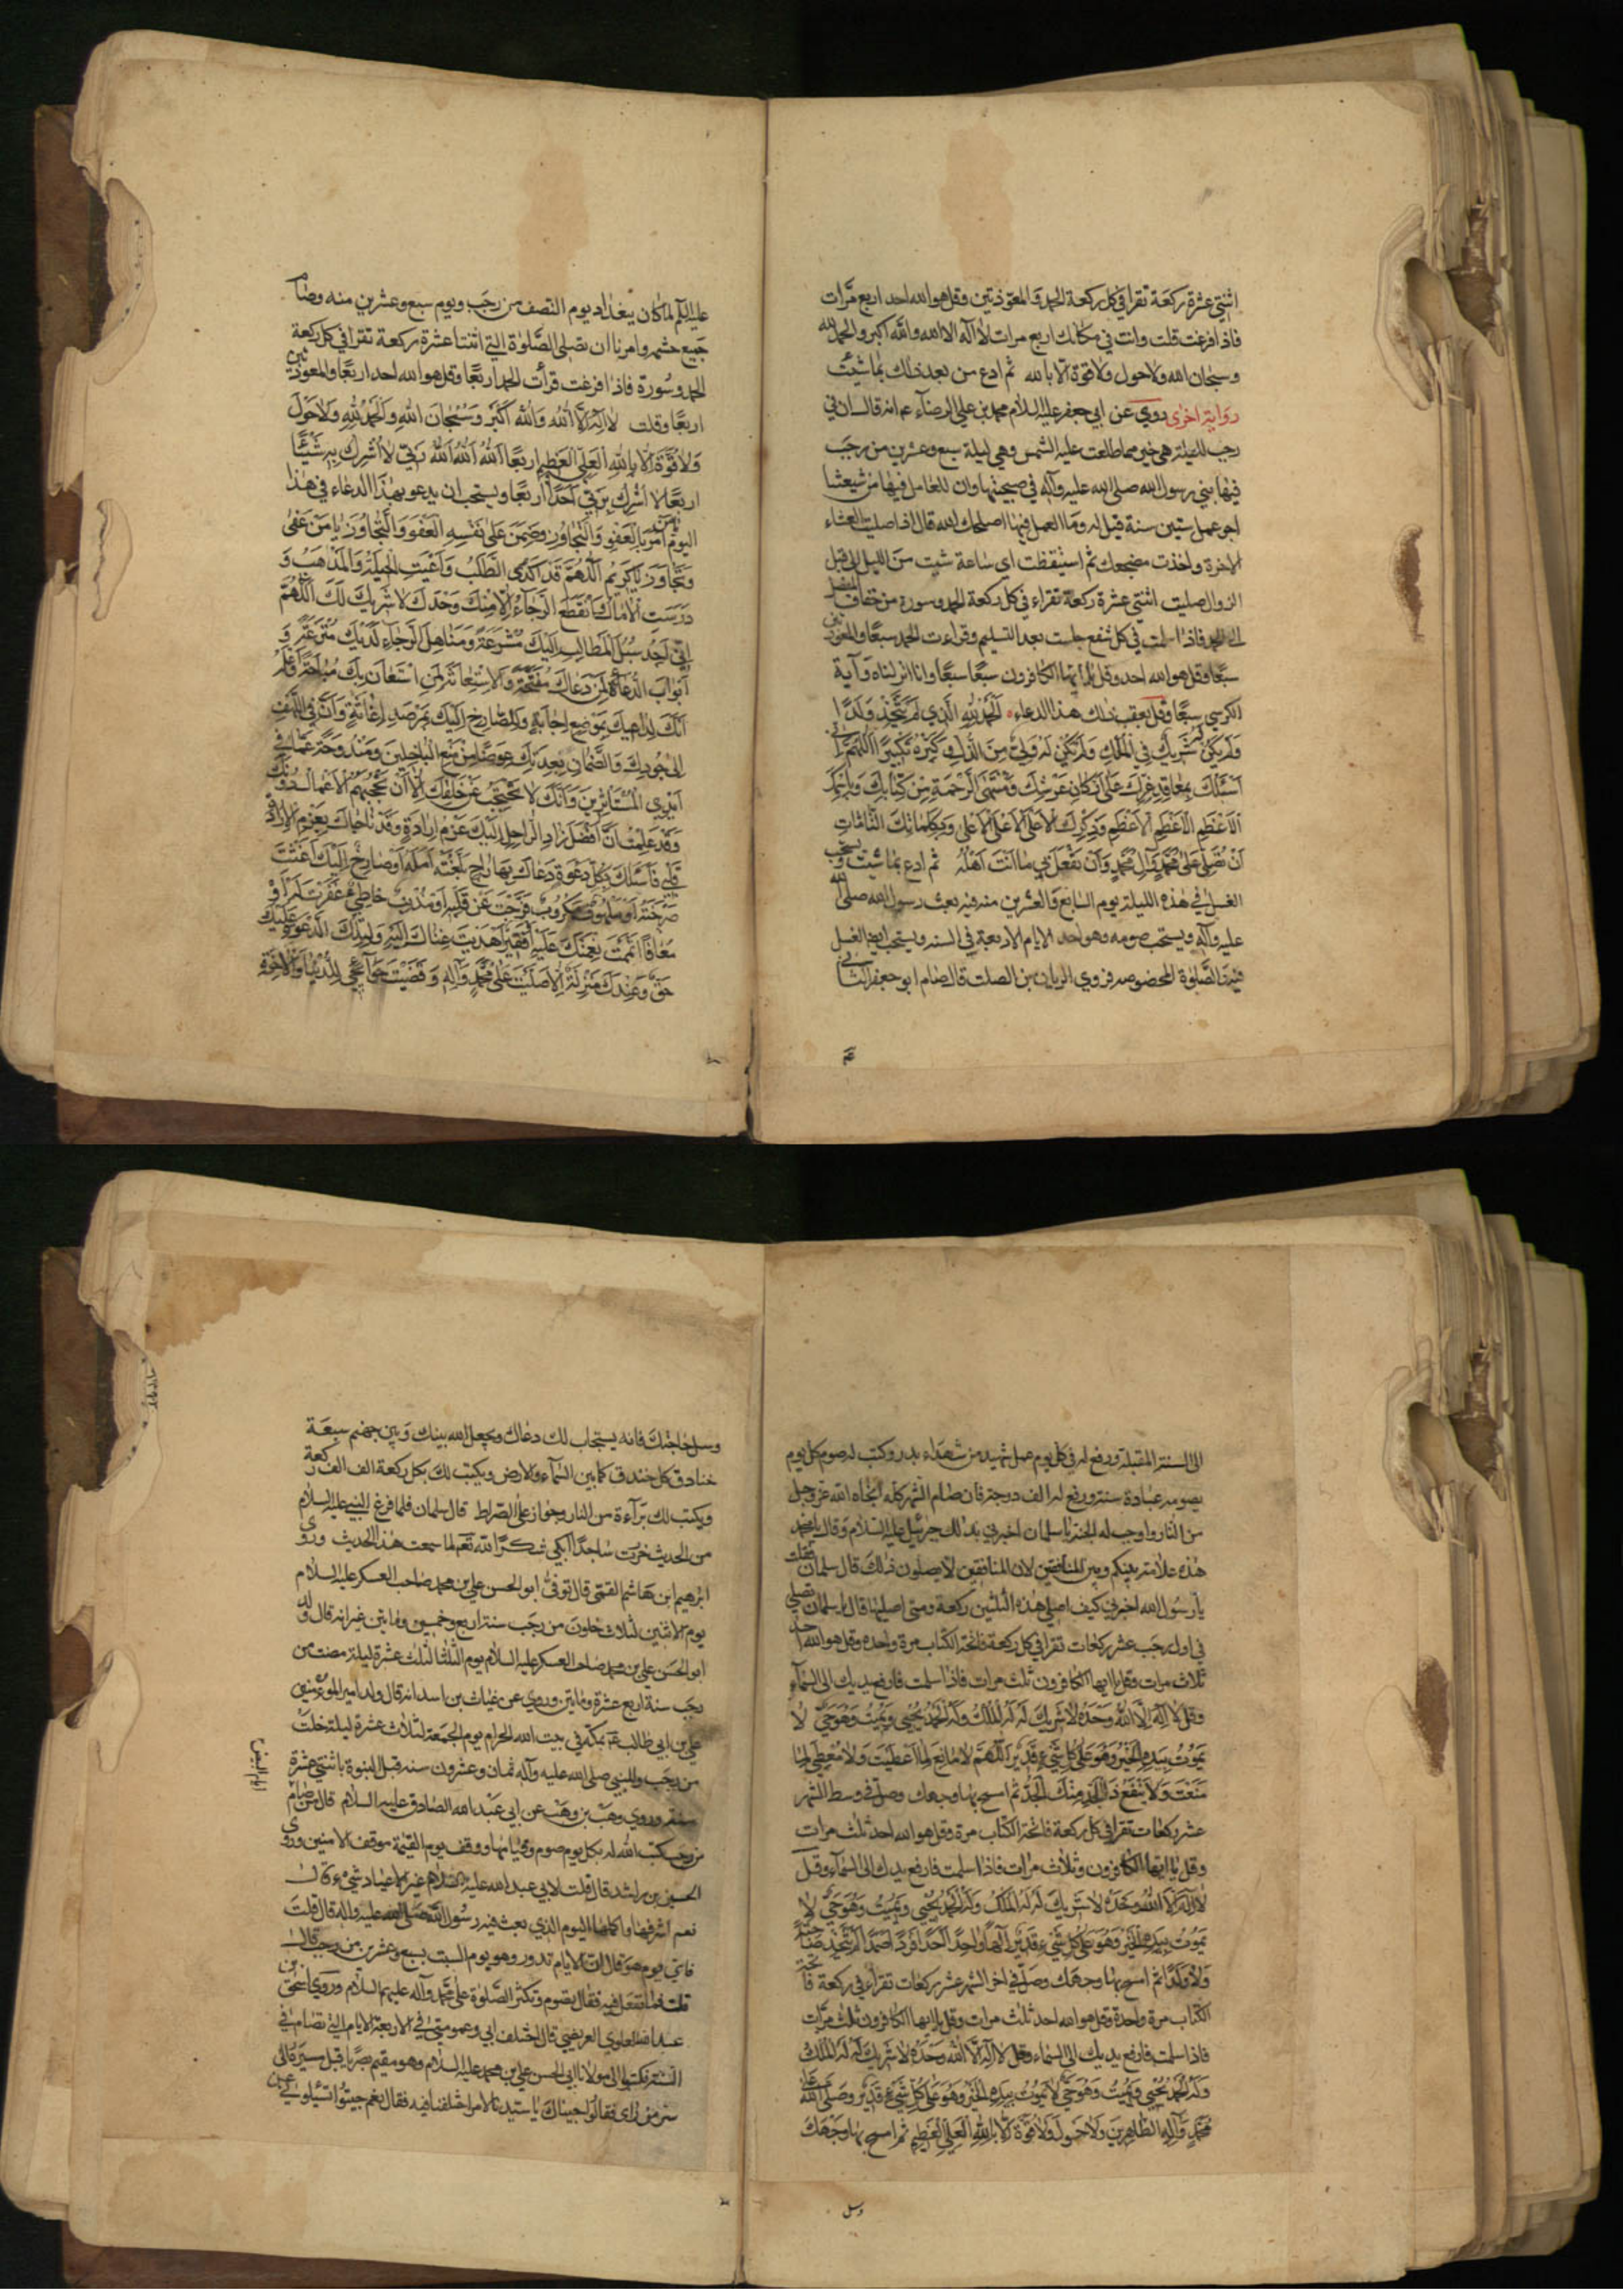 اثنتي عشرة ركعة تقرا في كل ركعة الحمد والمعوذتين وقل هو الله احد اربع مرّات
فاذا فرغت قلت وانت في مكانك اربع مرات لا اله الا الله والله اكبر والحمد لله
وسبحان الله ولا حول ولا قوة الا بالله ثم ادع من بعد ذلك بما شئت
رواية اخرى روي عن ابي جعفر عليه السلام محمد بن علي الرضا ء انه قال ان في
رجب لليلة هي خير مما طلعت عليه الشمس وهي ليلة سبع وعشرين من رجب
فيها نبئ رسول الله صلى الله عليه وآله في صبيحتها وان للعامل فيها من شيعتنا
اجر عمل ستين سنة قيل له وما العمل فيها اصلحك الله قال اذا صليت العشاء
الاخرة واخذت مضجعك ثم استيقظت اى ساعة شئت من الليل الى قبل
الزوال صليت اثنتي عشرة ركعة تقراء في كل ركعة الحمد وسورة من خفاف المفصل
الى الحمد فاذا سلمت في كل شفع جلست بعد التسليم وقراءت الحمد سبعًا والمعوذتين
سبعًا وقل هو الله احد وقل يا ايها الكافرون سبعًا سبعًا وانا انزلناه وآية
الكرسي سبعًا وقل بعقب ذلك هذا الدعاء الحمد لله الذي لم يتخذ ولدًا
ولم يكن له شريك في الملك ولم يكن له ولي من الذل وكبره تكبيرًا اللهم اني
اسئلك بمعاقد عزك على اركان عرشك ومنتهى الرحمة من كتابك وباسمك
الاعظم الاعظم الاعظم وذكرك الاعلى الاعلى الاعلى وبكلماتك التامات
ان تصلي على محمد وآل محمد وان تفعل بي ما انت اهله ثم ادع بما شئت ويستحب
الغسل في هذه الليلة يوم السابع والعشرين منه فيه بعث رسول الله صلى الله
عليه وآله ويستحب صومه وهو احد الايام الاربعة في السنة ويستحب فيه الغسل
فيه والصلوة المخصوصة فروي الريان بن الصلت قال صام ابو جعفر الثاني
عليه السلم لما كان ببغداد يوم النصف من رجب ويوم سبع وعشرين منه وصام
جميع حشمه وامرنا ان نصلى الصلوة التي اثنتا عشرة ركعة تقرا في كل ركعة
الحمد وسورة فاذا فرغت قرأت الحمد اربعًا وقل هو الله احد اربعًا والمعوذتين
اربعًا وقلت لا اله الا الله والله اكبر وسبحان الله والحمد لله ولا حول
ولا قوة الا بالله العلي العظيم اربعًا الله الله الله ربي لا اشرك به شيئًا
اربعًا لا اشرك بربي احدًا اربعًا ويستحب ان يدعو بهذا الدعاء في هذا
اليوم يا من امر بالعفو والتجاوز وضمن على نفسه العفو والتجاوز يا من عفى
وتجاوز يا كريم اللهم قد اكدى الطلب واعيت الحيلة والمذهب و
درست الامال وانقطع الرجاء الا منك وحدك لا شريك لك اللهم
اني اجد سبل المطالب اليك مشرعة ومناهل الرجاء لديك مترعة و
ابواب الدعاء لمن دعاك مفتحة والاستعانة لمن استعان بك مباحة واعلم
انك لداعيك بموضع اجابة وللصارخ اليك بمرصد اغاثة وان في اللهف
الى جودك والضمان بعدتك عوضًا من منع الباخلين ومندوحة عما في
ايدي المستاثرين وانك لا تحتجب عن خلقك الا ان تحجبهم الاعمال دونك
وقد علمت ان افضل زاد الراحل اليك عزم ارادة وقد ناجاك بعزم الارادة
قلبي فاسئلك بكل دعوة دعاك بها راج بلغته امله او صارخ اليك اغثت
صرخته او ملهوف مكروب فرجت عن قلبه او مذنب خاطئ غفرت له او
معافًا اتممت نعمتك عليه او فقير اهديت غناك اليه ولتلك الدعوة عليك
حق وعندك منزلة الا صليت على محمد وآله وقضيت حوآئجي للدنيا والاخرة
الى السنة المقبلة ورفع له في كل يوم عمل شهيد من شهداء بدر وكتب له صوم كل يوم
يصومه عبادة سنة ورفع له الف درجة فان صام الشهر كله انجاه الله عز وجل
من النار واوجب له الجنة يا سلمان اخبرني بذلك جبرئيل عليه السلام وقال يا محمد
هذه علامة بينكم وبين المنافقين لان المنافقين لا يصلون ذلك قال سلمان فقلت
يا رسول الله اخبرني كيف اصلي هذه الثلثين ركعة ومتى اصليها قال يا سلمان تصلي
في اول رجب عشر ركعات تقرا في كل ركعة فاتحة الكتاب مرة واحدة وقل هو الله احد
ثلاث مرات وقل يا ايها الكافرون ثلث مرات فاذا سلمت فارفع يديك الى السمآء
وقل لا اله الا الله وحده لا شريك له له الملك وله الحمد يحيى ويميت وهو حي لا
يموت بيده الخير وهو على كل شيء قدير اللهم لا مانع لما اعطيت ولا معطي لما
منعت ولا ينفع ذا الجد منك الجد ثم امسح بهما وجهك وصل في وسط الشهر
عشر ركعات تقرا في كل ركعة فاتحة الكتاب مرة وقل هو الله احد ثلث مرات
وقل يا ايها الكافرون وثلاث مرات فاذا سلمت فارفع يديك الى السمآء وقل
لا اله الا الله وحده لا شريك له له الملك وله الحمد يحيى ويميت وهو حي لا
يموت بيده الخير وهو على كل شيء قدير الهًا واحدًا احدًا فردًا صمدًا لم يتخذ صاحبة
ولا ولدًا ثم امسح بهما وجهك وصل في اخر الشهر عشر ركعات تقراء في ركعة فاتحة
الكتاب مرة واحدة وقل هو الله احد ثلث مرات وقل يا ايها الكافرون ثلث مرات
فاذا سلمت فارفع يديك الى السماء وقل لا اله الا الله وحده لا شريك له له الملك
وله الحمد يحيى ويميت وهو حي لا يموت بيده الخير وهو على كل شيء قدير وصلى الله على
محمد وآله الطاهرين ولا حول ولا قوة الا بالله العلي العظيم ثم امسح بهما وجهك
وسل
وسل حاجتك فانه يستجاب لك دعاك ويجعل الله بينك وبين جهنم سبعة
خنادق كل خندق كما بين السمآء والارض ويكتب لك بكل ركعة الف الف ركعة
ويكتب لك برآءة من النار وجواز على الصراط قال سلمان فلما فرغ النبي عليه السلام
من الحديث خررت ساجدًا ابكي شكرًا لله تعم لما سمعت هذا الحديث وروى
ابرهيم ابن هاشم القمي قال توفى ابو الحسن علي بن محمد صاحب العسكر عليه السلام
يوم الاثنين لثلاث خلون من رجب سنة اربع وخمسين ومايتين غيرانه قال ولد
ابو الحسن علي بن محمد صاحب العسكر عليه السلام يوم الثلثا لثلث عشرة ليلة مضت من
رجب سنة اربع عشرة ومايتين وروي عن غياث بن اسد انه قال ولد امير المومنين
علي بن ابي طالب ع بمكة في بيت الله الحرام يوم الجمعة لثلاث عشرة ليلة خلت
من رجب وللنبي صلى الله عليه وآله ثمان وعشرون سنه قبل النبوة باثنتي عشرة
سنة وروي وهب بن وهب عن ابي عبد الله الصادق عليه السلام قال من صام
من رجب كتب الله له بكل يوم صوم وقيامها ووقف يوم القيمة موقف الامنين وروى
الحسين بن راشد قال قلت لابي عبد الله عليه السلام غير هذا الاعياد شيء قال
نعم اشرفها واكملها اليوم الذي بعث فيه رسول الله صلى الله عليه واله قال قلت
فاي يوم هو قال ان الايام تدور وهو يوم السبت لسبع وعشرين من رجب قال
قلت فما نفعل فيه فقال تصوم وتكثر الصلوة على محمد وآله عليهم السلام وروي اسحق بن
عبد الله العلوي العريضي قال اختلف ابي وعمومتي في الاربعة الايام التي تصام في
السنة فركبوا الى مولانا ابى الحسن علي بن محمد عليه السلام وهو مقيم بصريا قبل مسيره الى
سر من راى فقالوا جيناك يا سيدنا لامر اختلفنا فيه فقال نعم جيتوا تسئلوني عن